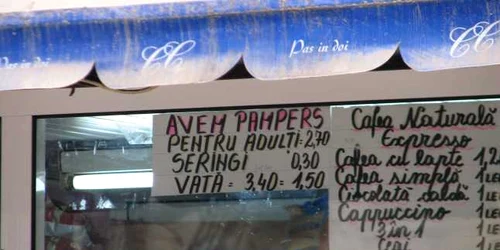 Pas in doi
CC
Pas in doi
CC
AVEM PAMPERS
PENTRU ADULTI=2,70
SERINGI 0,30
VATĂ = 3,40= 1,50
Cafea Naturală
Expresso
Cafea cu lapte 1,2
Cafea simplă 1 LE
Ciocolată caldă 1 LE
Cappuccino 1 LE
3 in 1 1
Ceai